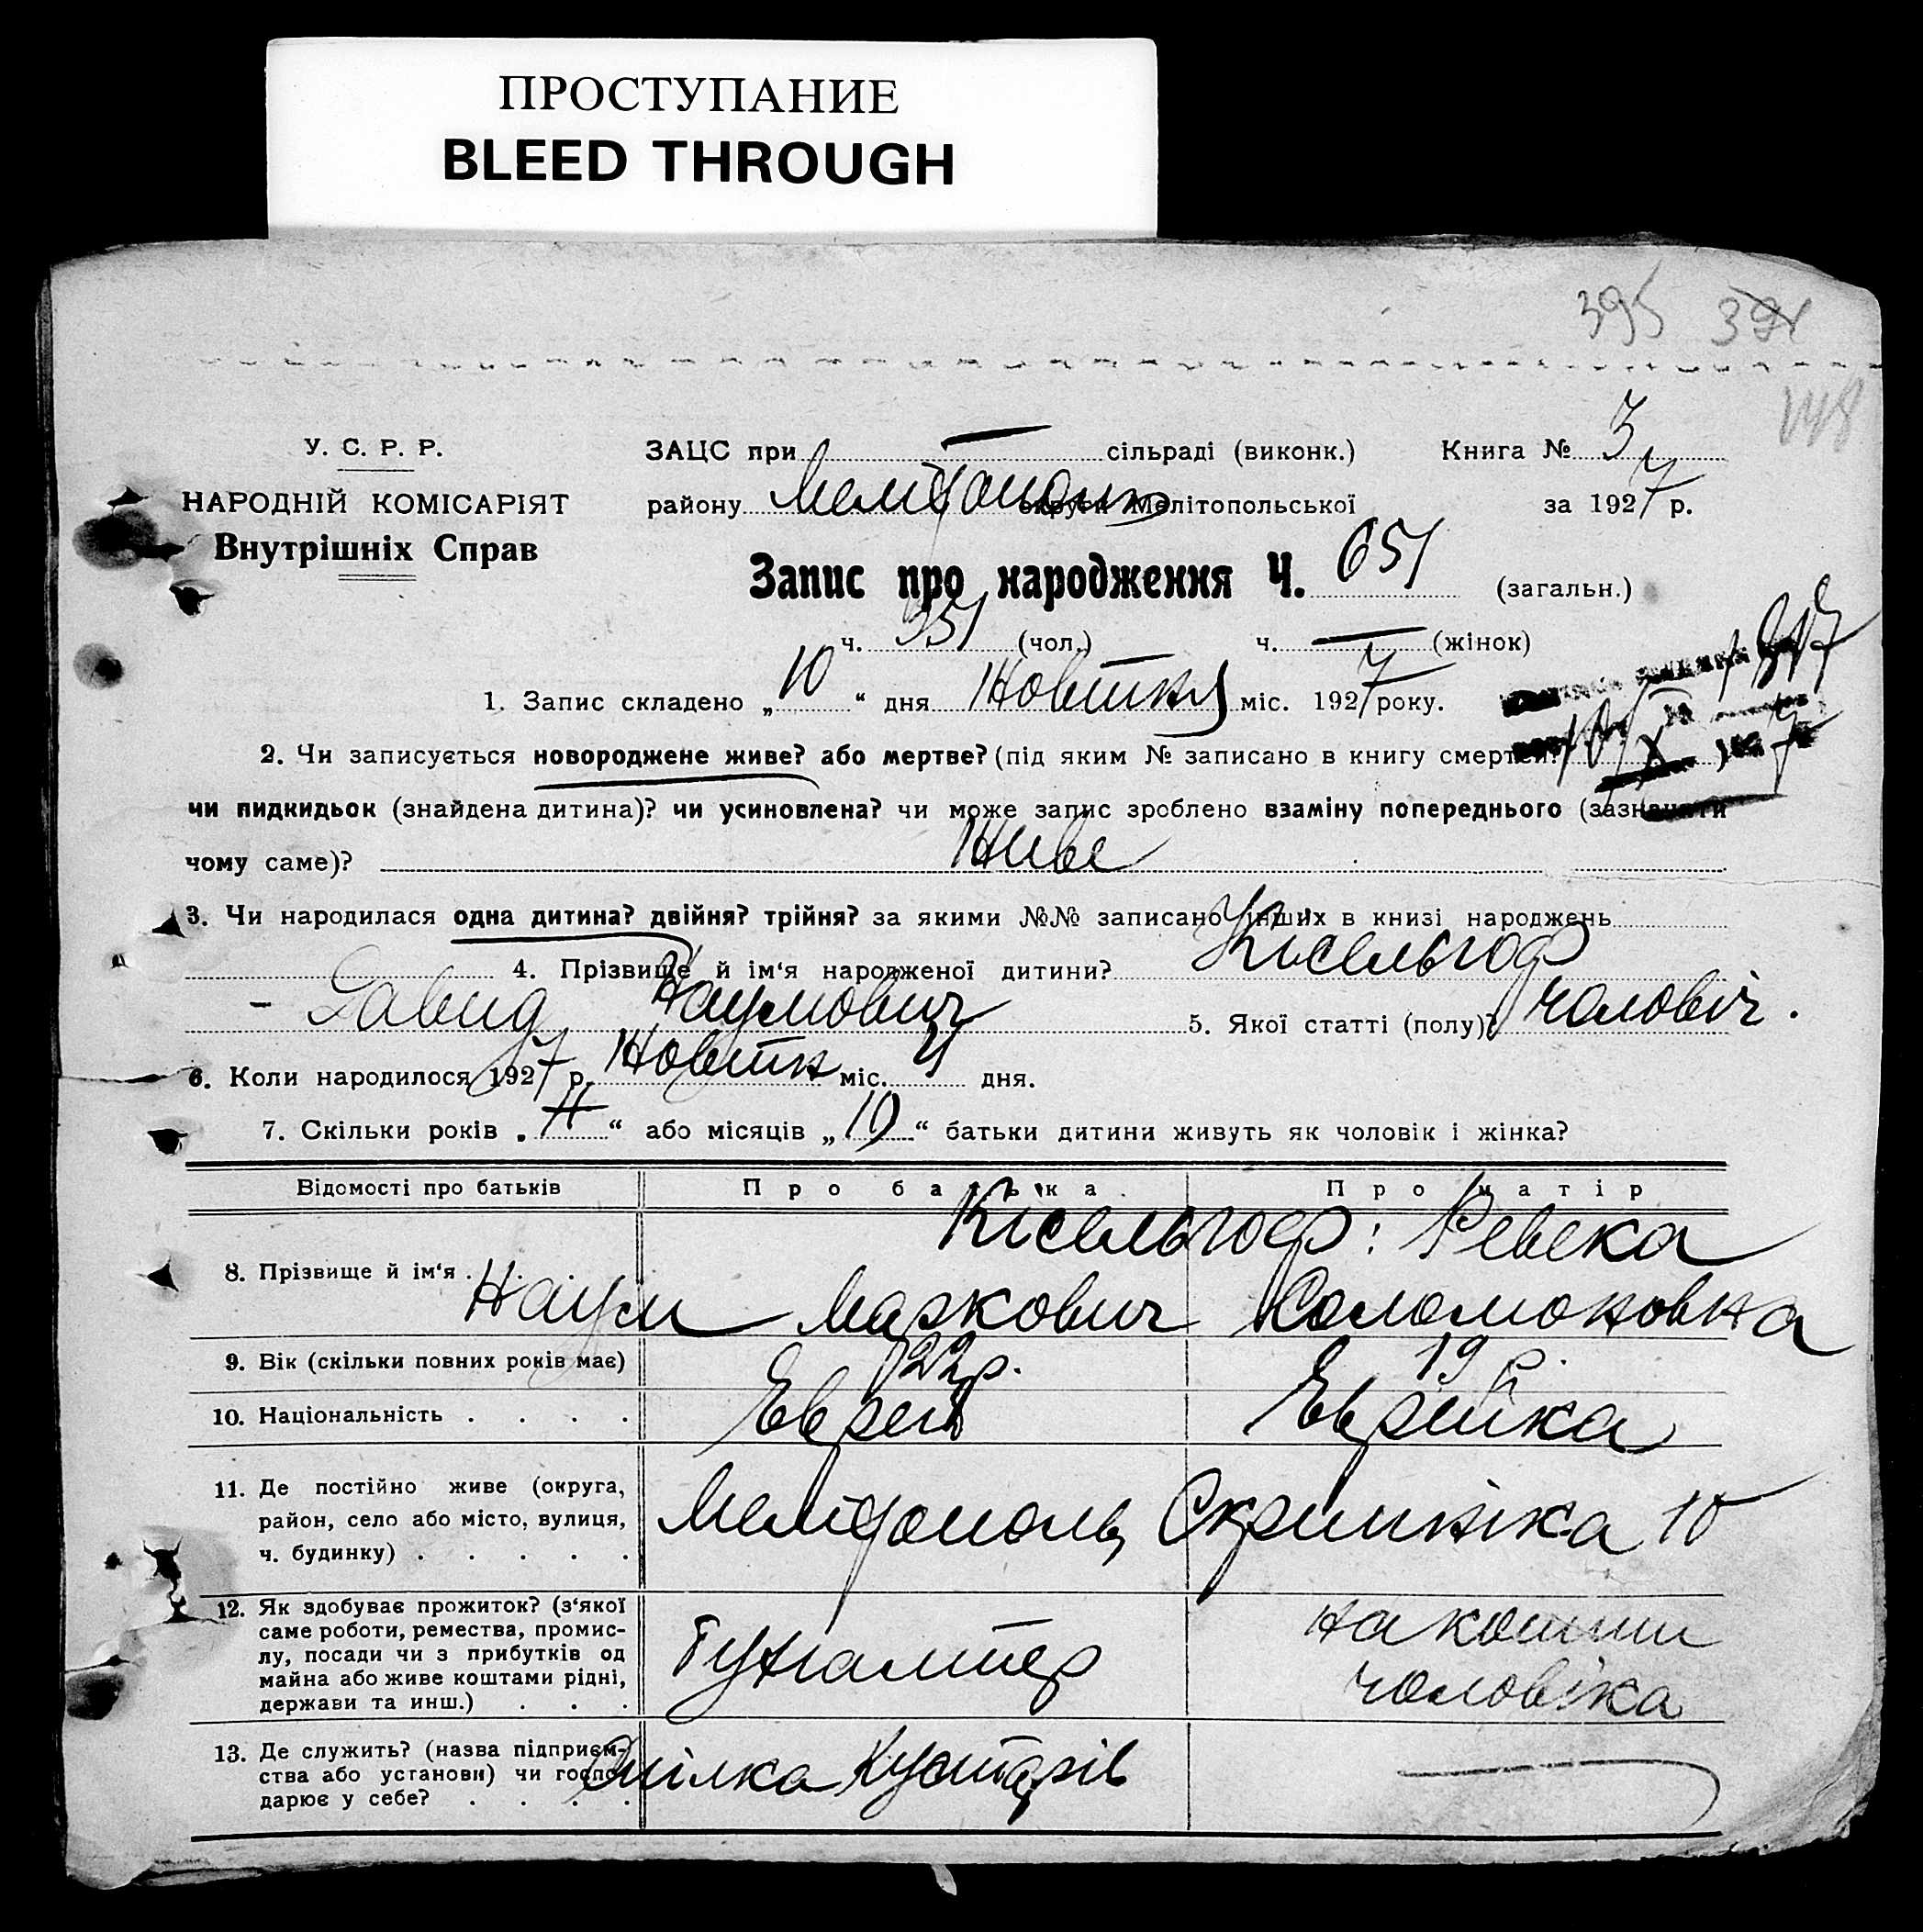 ПРОСТУПАНИЕ
BLEED THROUGH
395 394
148
У. С. Р. Р.
НАРОДНІЙ КОМІСАРІЯТ
Внутрішніх Справ
ЗАЦС при — сільраді (виконк.) Книга № 3
району округи Мелітопольської за 1927 р.
Запис про народження Ч. 651 (загальн.)
ч. 351 (чол.) ч. — (жінок)
1. Запис складено „ 10 “ дня Жовтня міс. 1927 року.
2. Чи записується новороджене живе? або мертве? (під яким № записано в книгу смертей?
чи пидкидьок (знайдена дитина)? чи усиновлена? чи може запис зроблено взаміну попереднього (зазначити
чому саме)? Живе
3. Чи народилася одна дитина? двійня? трійня? за якими №№ записано інших в книзі народжень
4. Прізвище й ім‘я народженої дитини? Кісельгоф
- Давид Наумович 5. Якої статті (полу)? чоловіч.
6. Коли народилося 1927 р. Жовтн міс. 4 дня.
7. Скільки років „ “ або місяців „ 10 “ батьки дитини живуть як чоловік і жінка?
Відомості про батьків Про батька Про матір
8. Прізвище й ім‘я . Кісельгоф: Ревека
Наум Маркович Соломоновна
9. Вік (скільки повних років має) 22 р. 19 р.
10. Національність . . . . Еврей Еврейка
11. Де постійно живе (округа,
район, село або місто, вулиця,
ч. будинку) . . . . . Мелітополь, Скрипніка 10
12. Як здобуває прожиток? (з‘якої
саме роботи, ремества, промис-
лу, посади чи з прибутків од
майна або живе коштами рідні,
держави та инш.) . . . Бухгалтер на кошти
чоловіка
13. Де служить? (назва підприєм-
ства або установи) чи госпо-
дарює у себе? . . . . Спілка Кустарів —